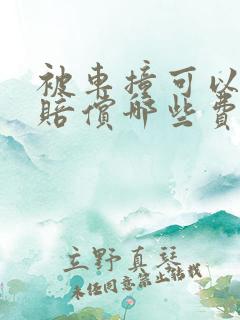 被车撞可以
赔偿哪些费
立野真琴
未经同意禁止转载